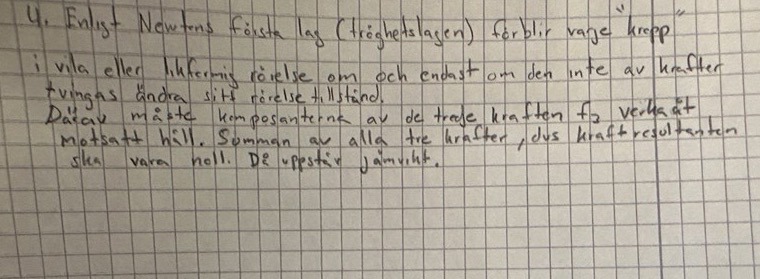 4. Enligt Newtons första lag (tröghetslagen) förblir varje "kropp"
i vila eller likformig rörelse om och endast om den inte av krafter
tvingas ändra sitt rörelse tillstånd.
Därav måste komposanterna av de trede kraften f3 verka åt
motsatt håll. Summan av alla tre krafter, dvs kraftresultanten
ska vara noll. De uppstår jämvikt.